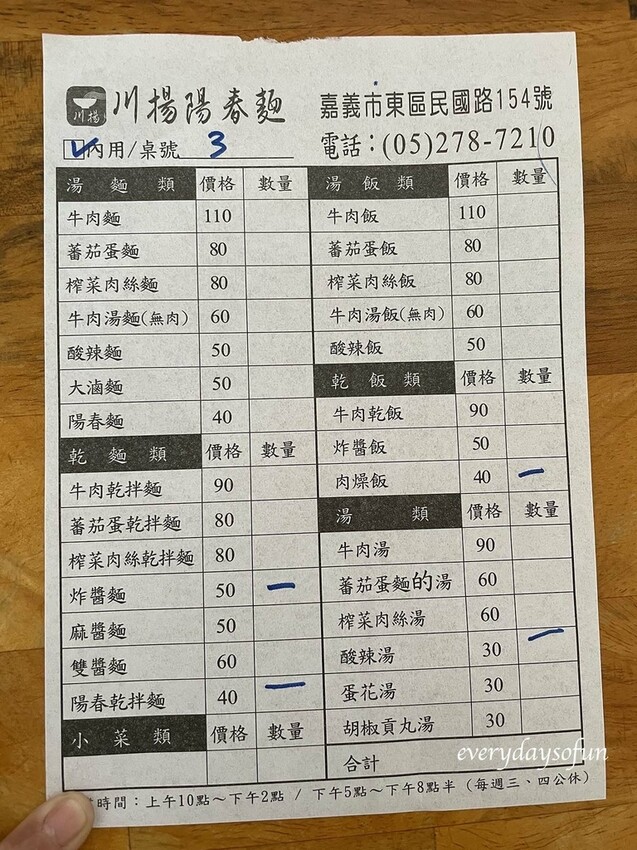 川揚
川揚陽春麵
嘉義市東區民國路154號
內用/桌號 3
電話：(05)278-7210
湯麵類 價格 數量
牛肉麵 110
蕃茄蛋麵 80
榨菜肉絲麵 80
牛肉湯麵(無肉) 60
酸辣麵 50
大滷麵 50
陽春麵 40
乾麵類 價格 數量
牛肉乾拌麵 90
蕃茄蛋乾拌麵 80
榨菜肉絲乾拌麵 80
炸醬麵 50 一
麻醬麵 50
雙醬麵 60
陽春乾拌麵 40 一
小菜類 價格 數量
湯飯類 價格 數量
牛肉飯 110
蕃茄蛋飯 80
榨菜肉絲飯 80
牛肉湯飯(無肉) 60
酸辣飯 50
乾飯類 價格 數量
牛肉乾飯 90
炸醬飯 50
肉燥飯 40 一
湯類 價格 數量
牛肉湯 90
蕃茄蛋麵的湯 60
榨菜肉絲湯 60
酸辣湯 30 一
蛋花湯 30
胡椒貢丸湯 30
合計
everydaysofun
時間：上午10點～下午2點 / 下午5點～下午8點半 (每週三、四公休)